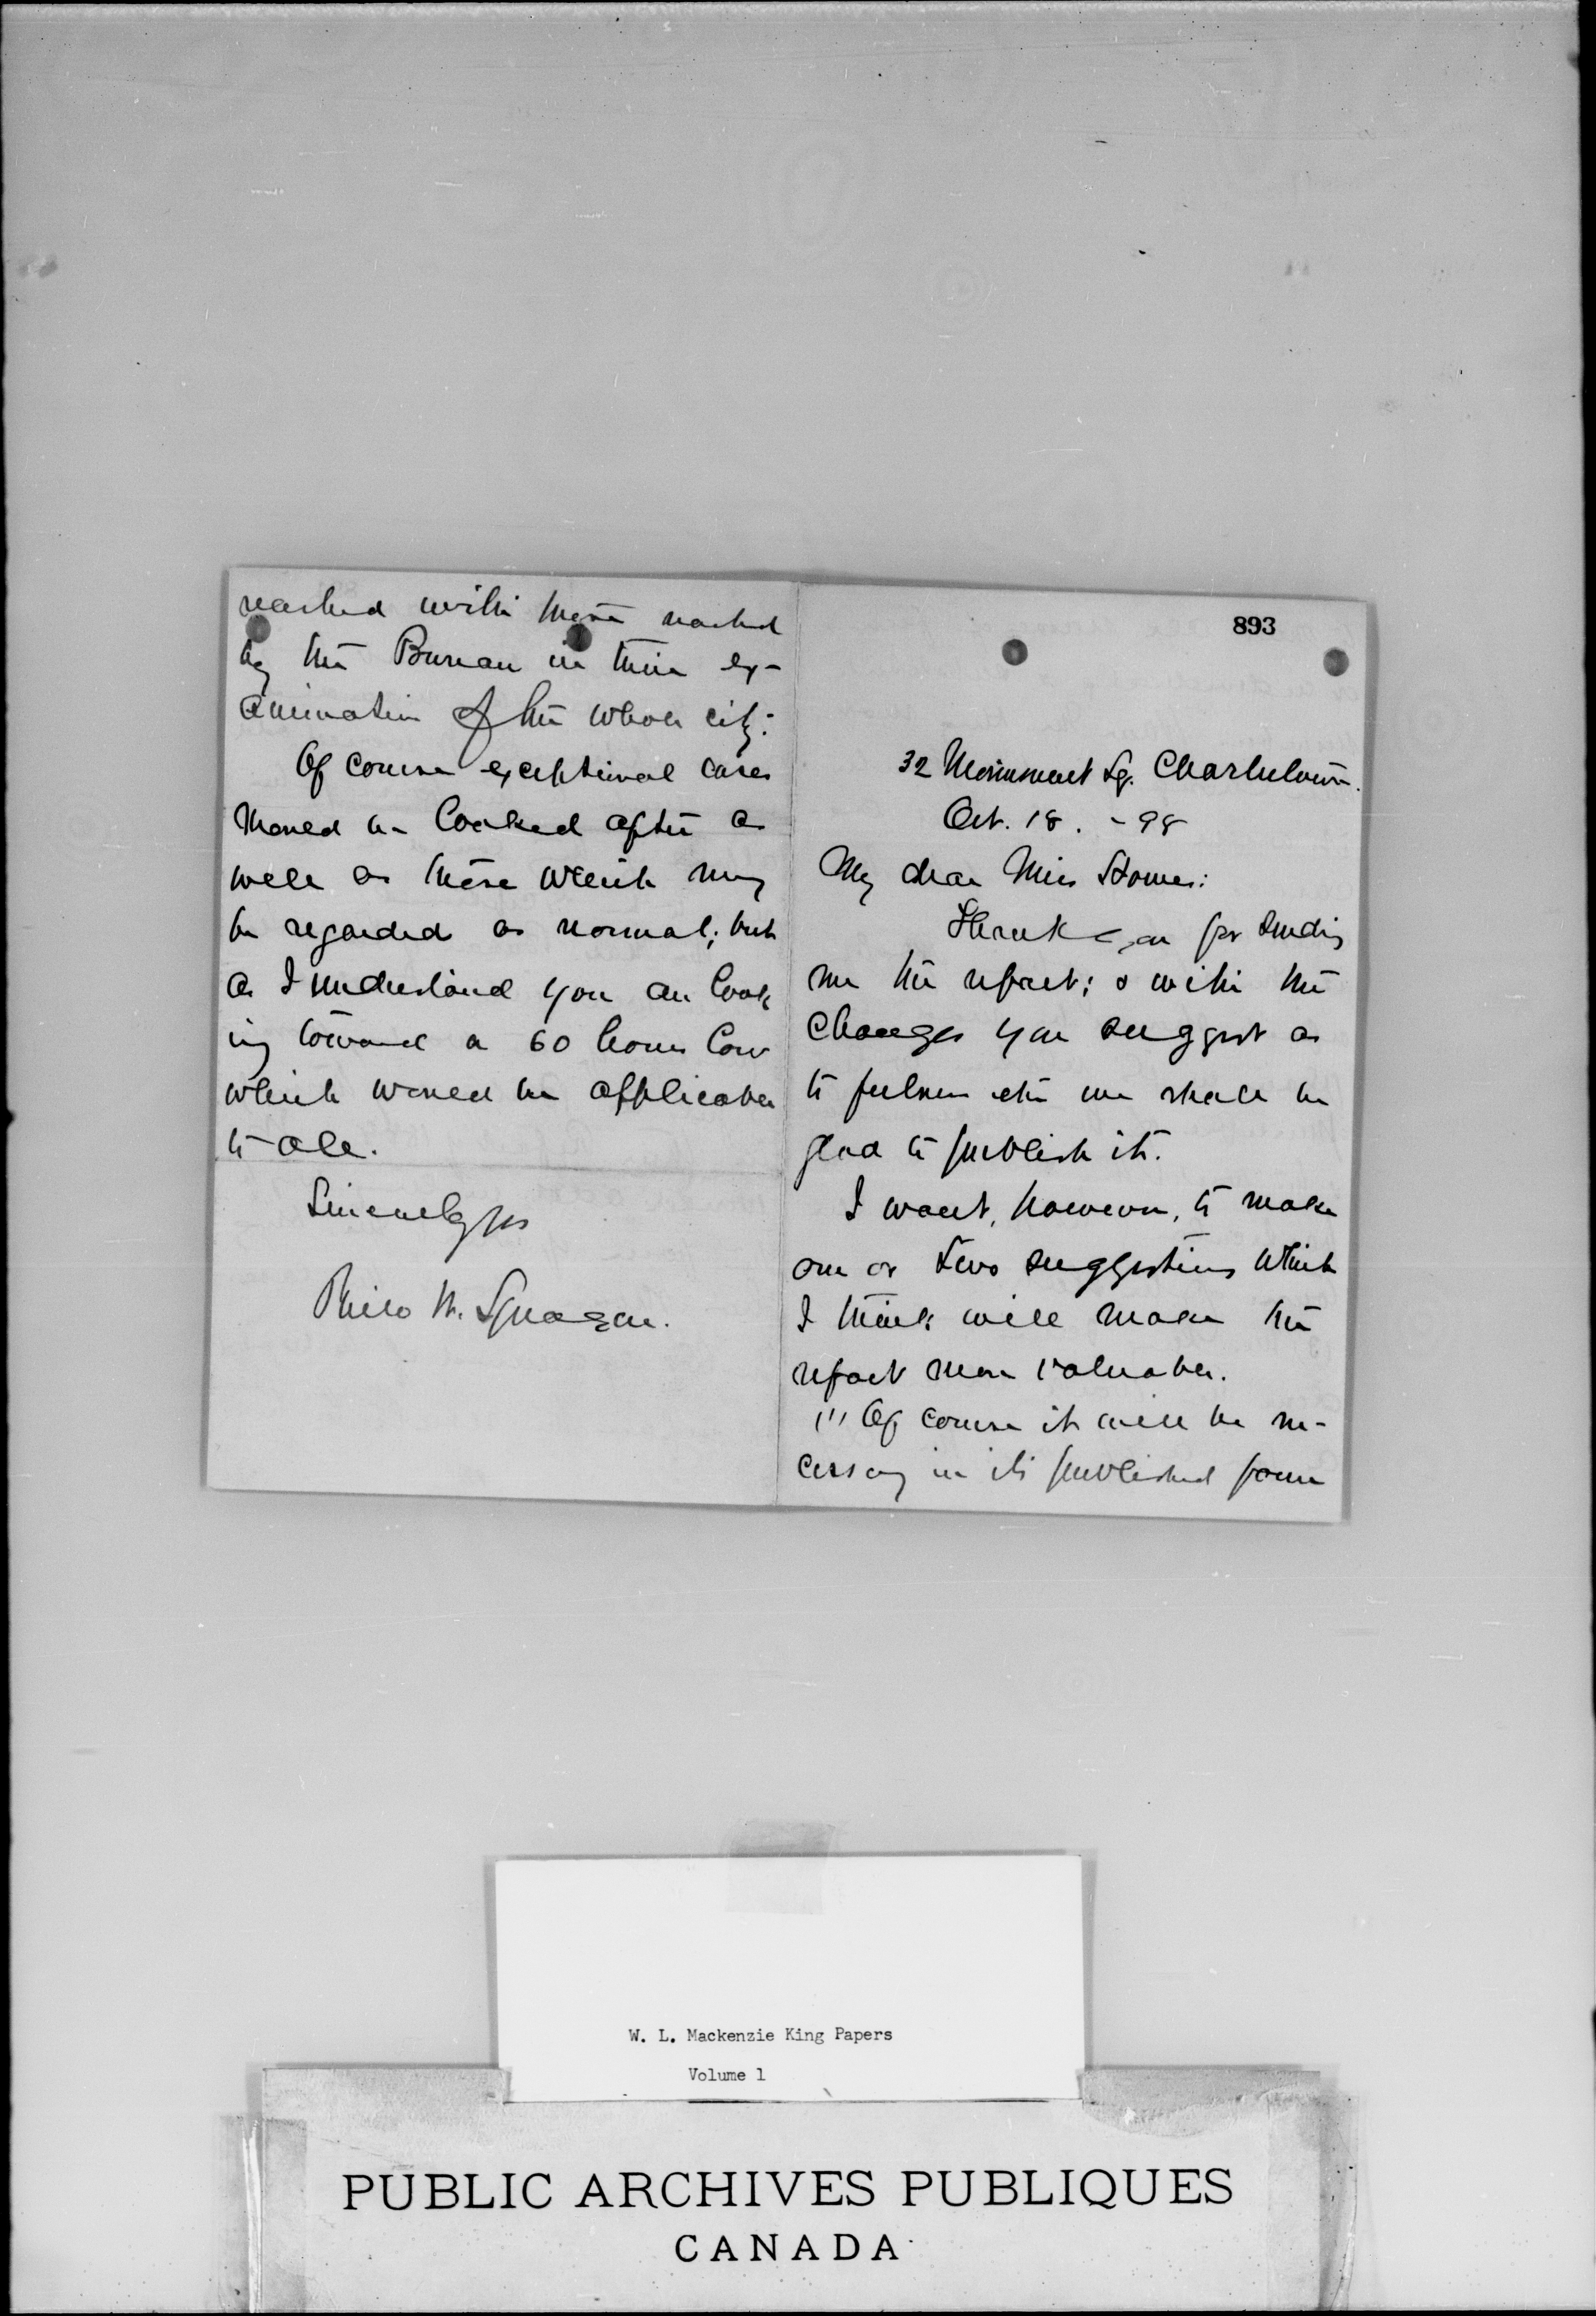 893
32 Monument Sq. Charlestown.
Oct. 18. - 98
My dear Miss Stone:
Thank you for sending
me the report; & with the
changes you suggest as
to fulness etc we shall be
glad to publish it.
I want, however, to make
one or two suggestions which
I think will make the
report more valuable.
(1) Of course it will be ne-
cessary in its published form
reached with those reached
by the Bureau in their ex-
amination of the whole city.
Of course exceptional cases
should be looked after as
well as those which may
be regarded as normal; but
as I understand you are look
ing toward a 60 hours law
which would be applicable
to all.
Sincerely yrs
Philo W. Sprague.
W. L. Mackenzie King Papers
Volume 1
PUBLIC ARCHIVES PUBLIQUES
CANADA